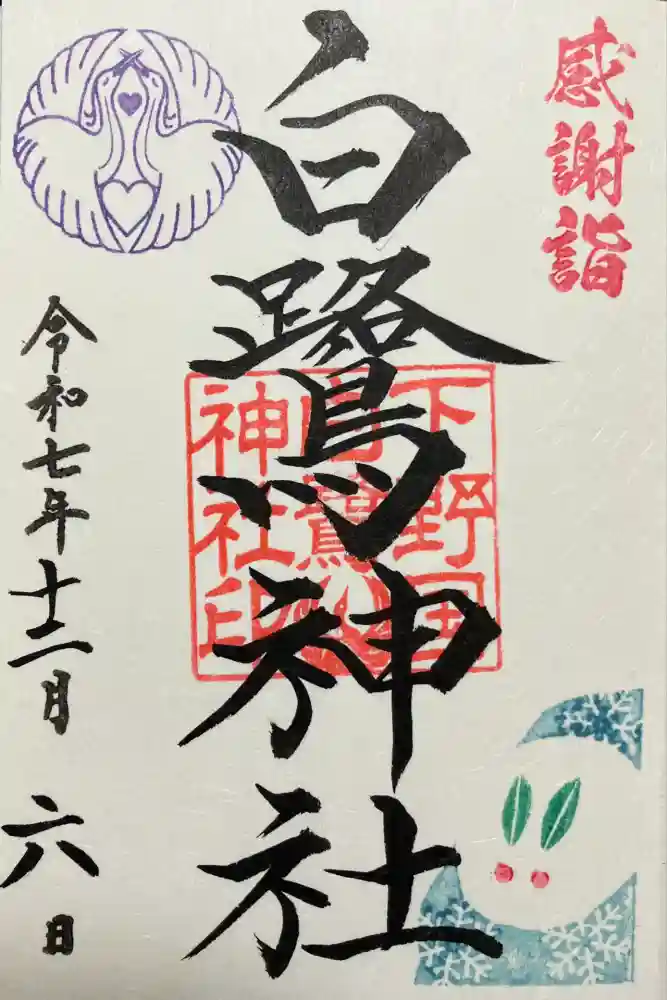 感謝詣
白鷺神社
下野国
白鷺
神社印
令和七年十二月 六日